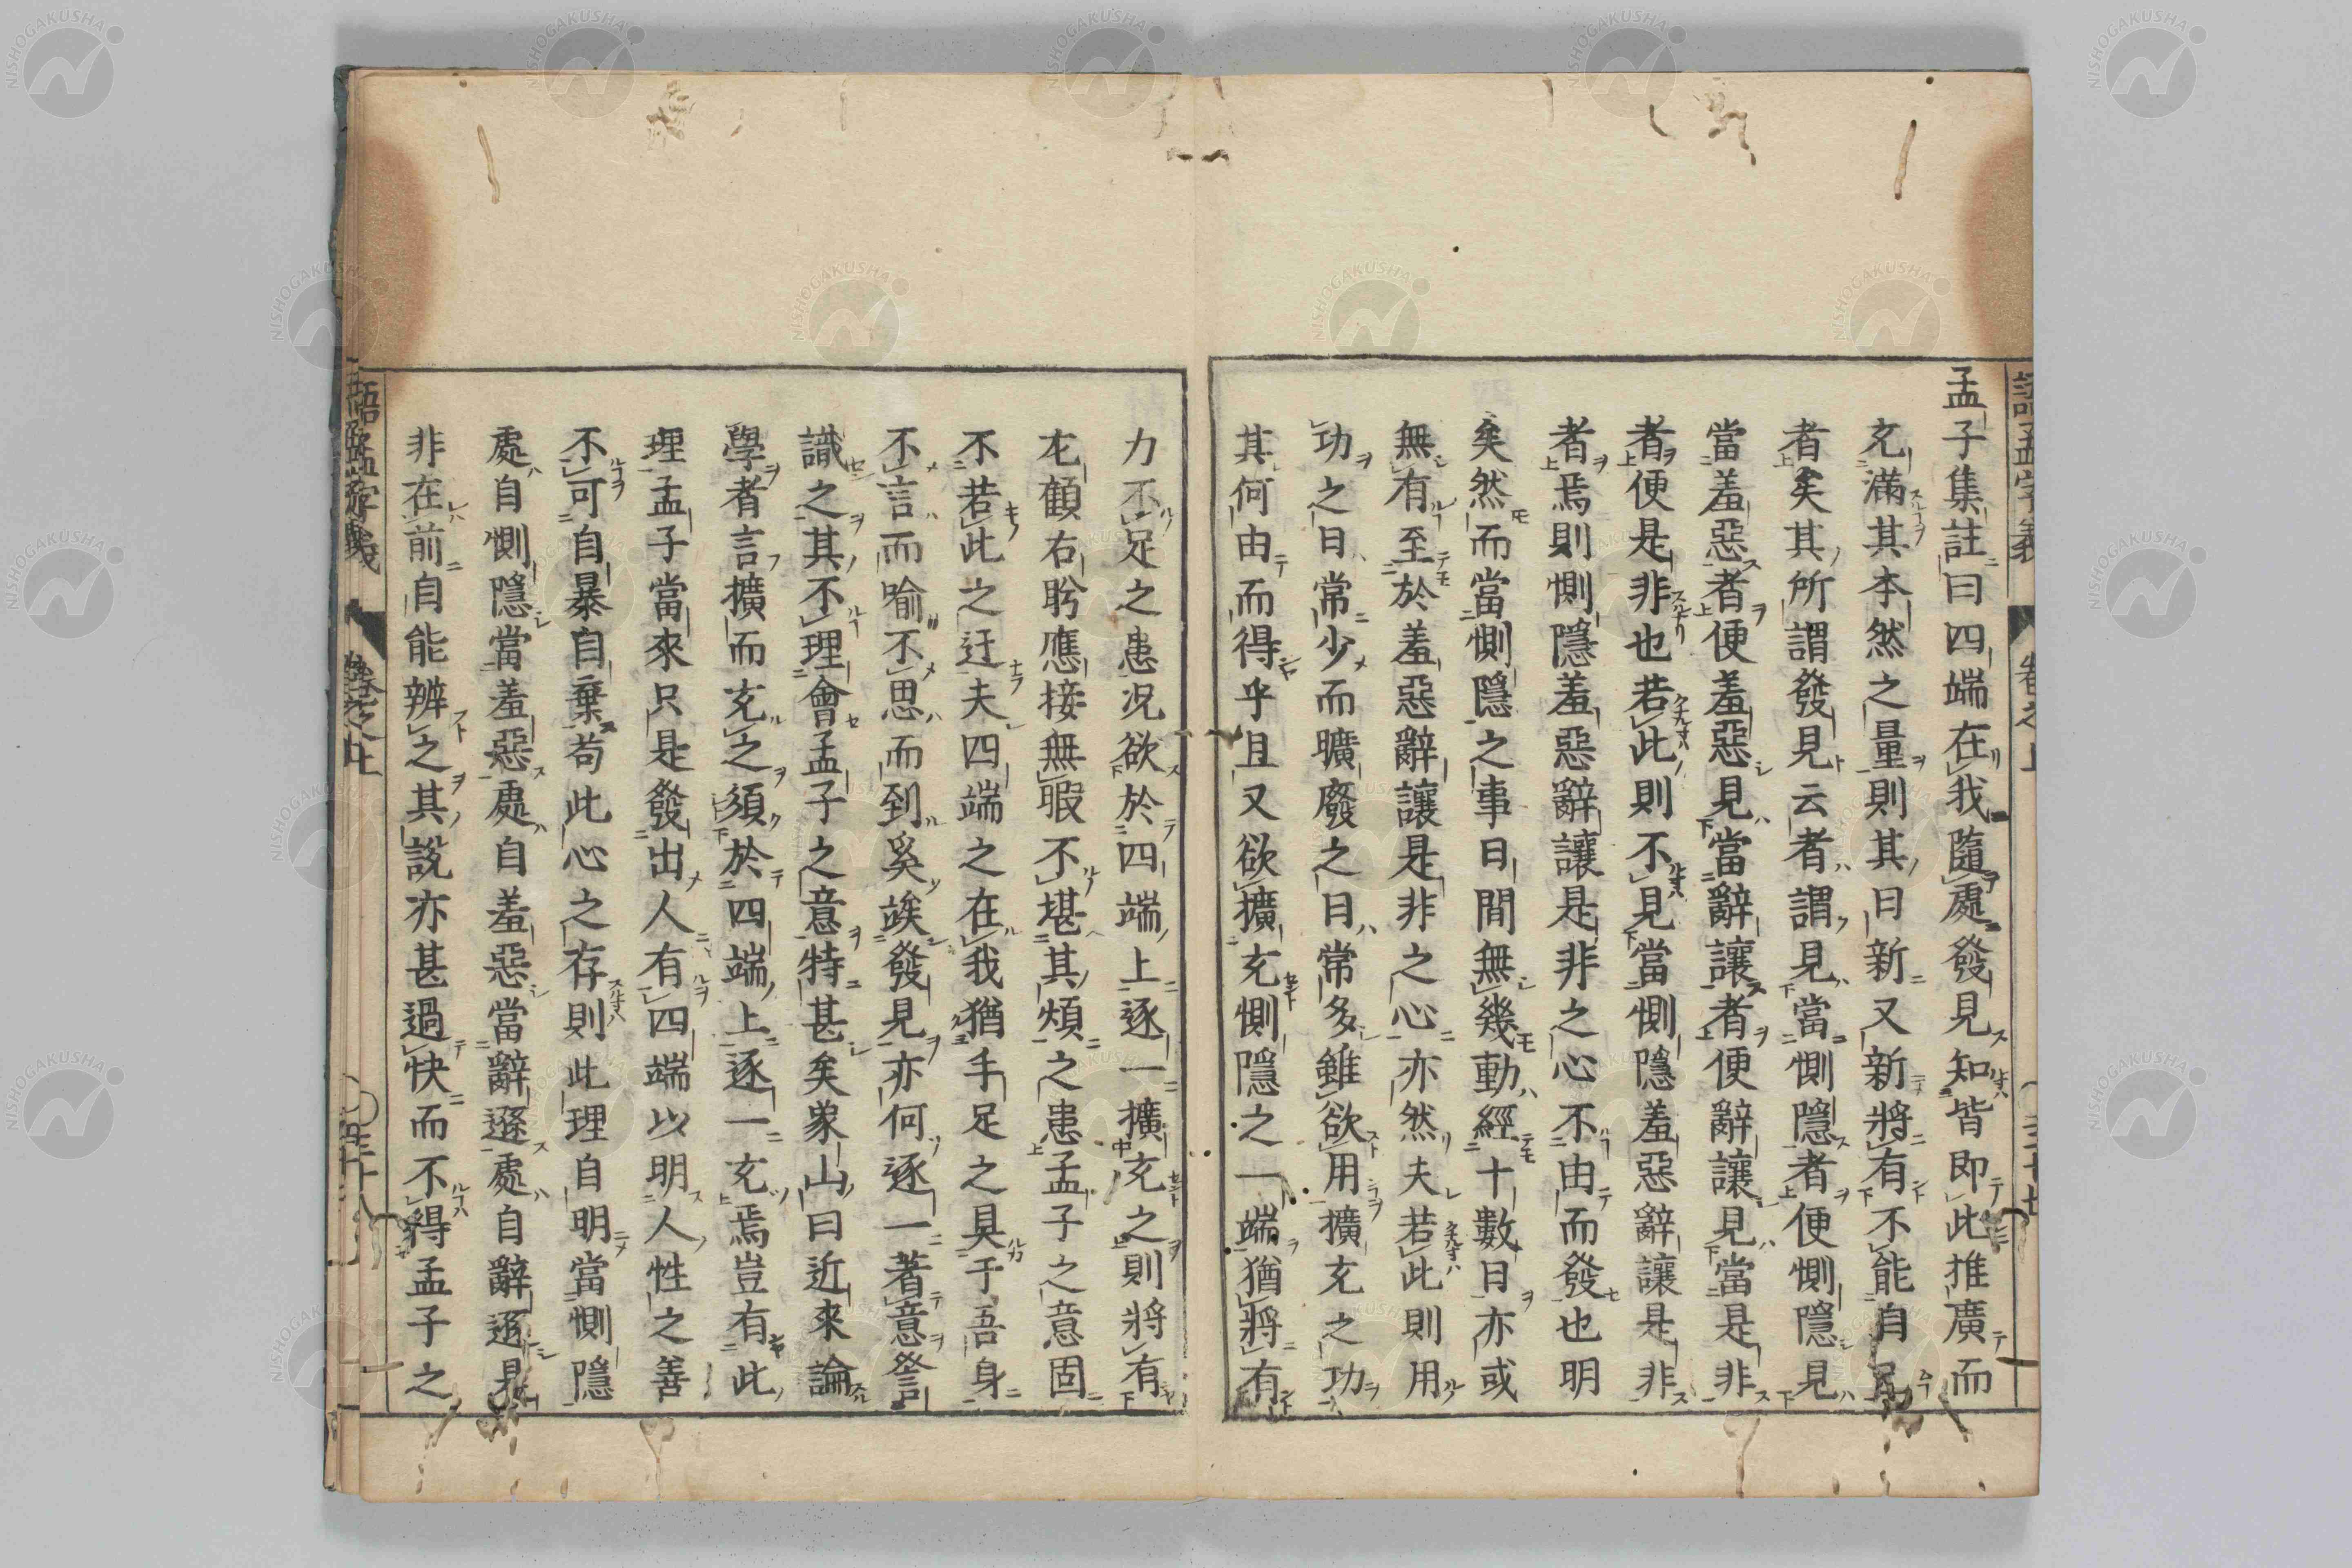 孟子集註曰四端在我隨處發見知皆即此推廣而
充滿其本然之量則其日新又新將有不能自已
者矣其所謂發見云者謂見當惻隱者便惻隱見
當羞惡者便羞惡見當辭讓者便辭讓見當是非
者便是非也若此則不見當惻隱羞惡辭讓是非
者焉則惻隱羞惡辭讓是非之心不由而發也明
矣然而當惻隱之事日間無幾動經十數日亦或
無有至於羞惡辭讓是非之心亦然夫若此則用
功之日常少而曠廢之日常多雖欲用擴充之功
其何由而得乎且又欲擴充惻隱之一端猶將有
力不足之患况欲於四端上逐一擴充之則將有
左顧右盻應接無暇不堪其煩之患孟子之意固
不若此之迂夫四端之在我猶手足之具于吾身
不言而喻不思而到奚竢發見亦何逐一著意訾
識之其不理會孟子之意特甚矣象山曰近來論
學者言擴而充之須於四端上逐一充焉豈有此
理孟子當來只是發出人有四端以明人性之善
不可自暴自棄苟此心之存則此理自明當惻隱
處自惻隱當羞惡處自羞惡當辭遜處自辭遜是
非在前自能辨之其說亦甚過快而不得孟子之
語孟字義
卷之上